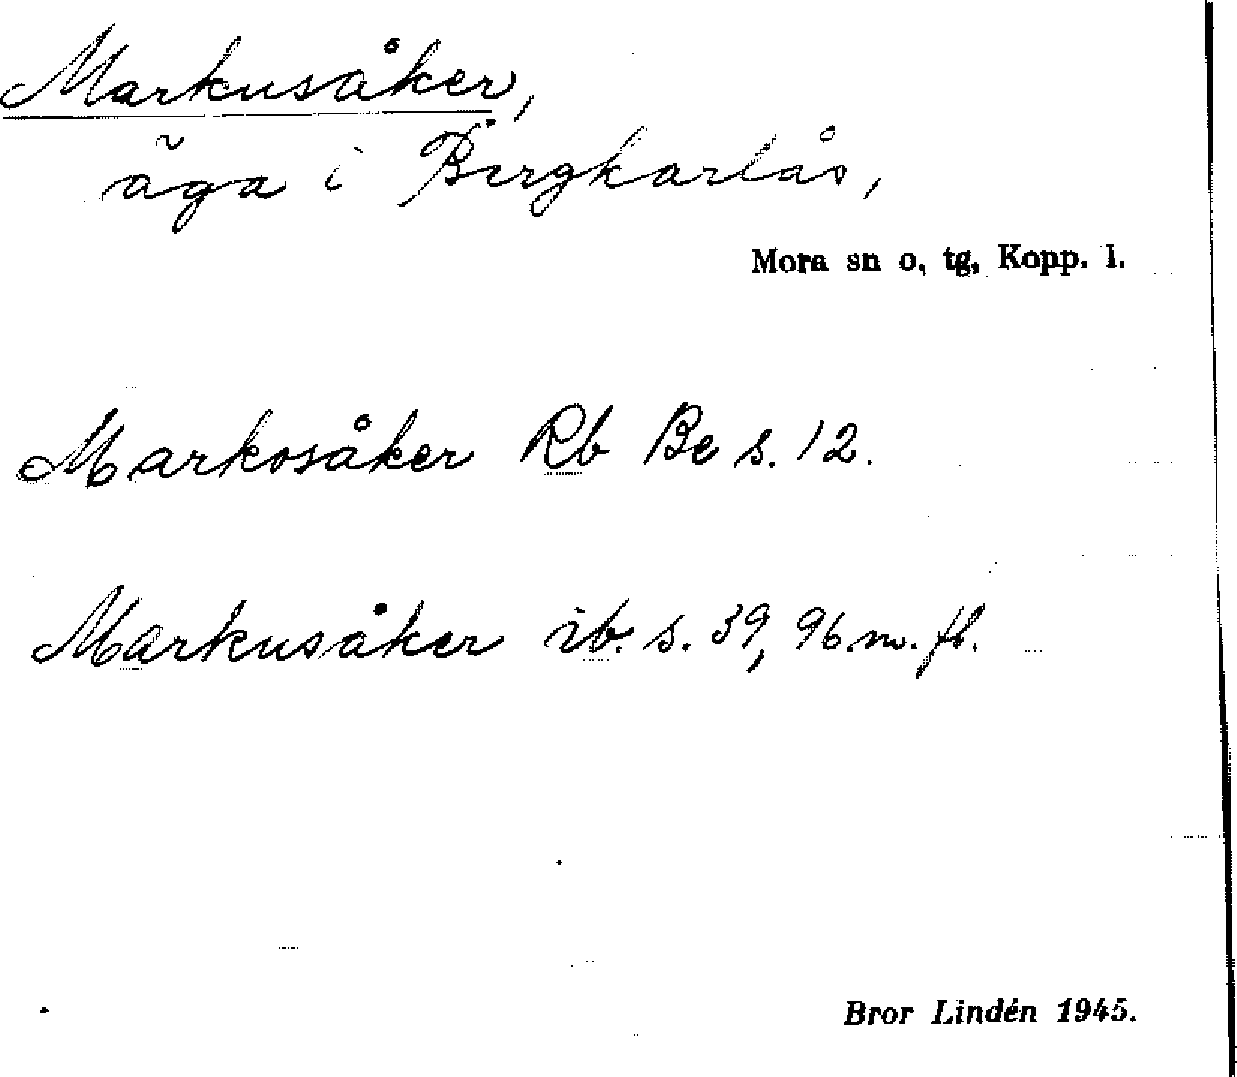 Markusåker,
äga i Bergkarlås,
Mora sn o, tg, Kopp. l.
Markosåker Rb Be s. 12.
Markusåker ib. s. 39, 96 m. fl.
Bror Lindén 1945.